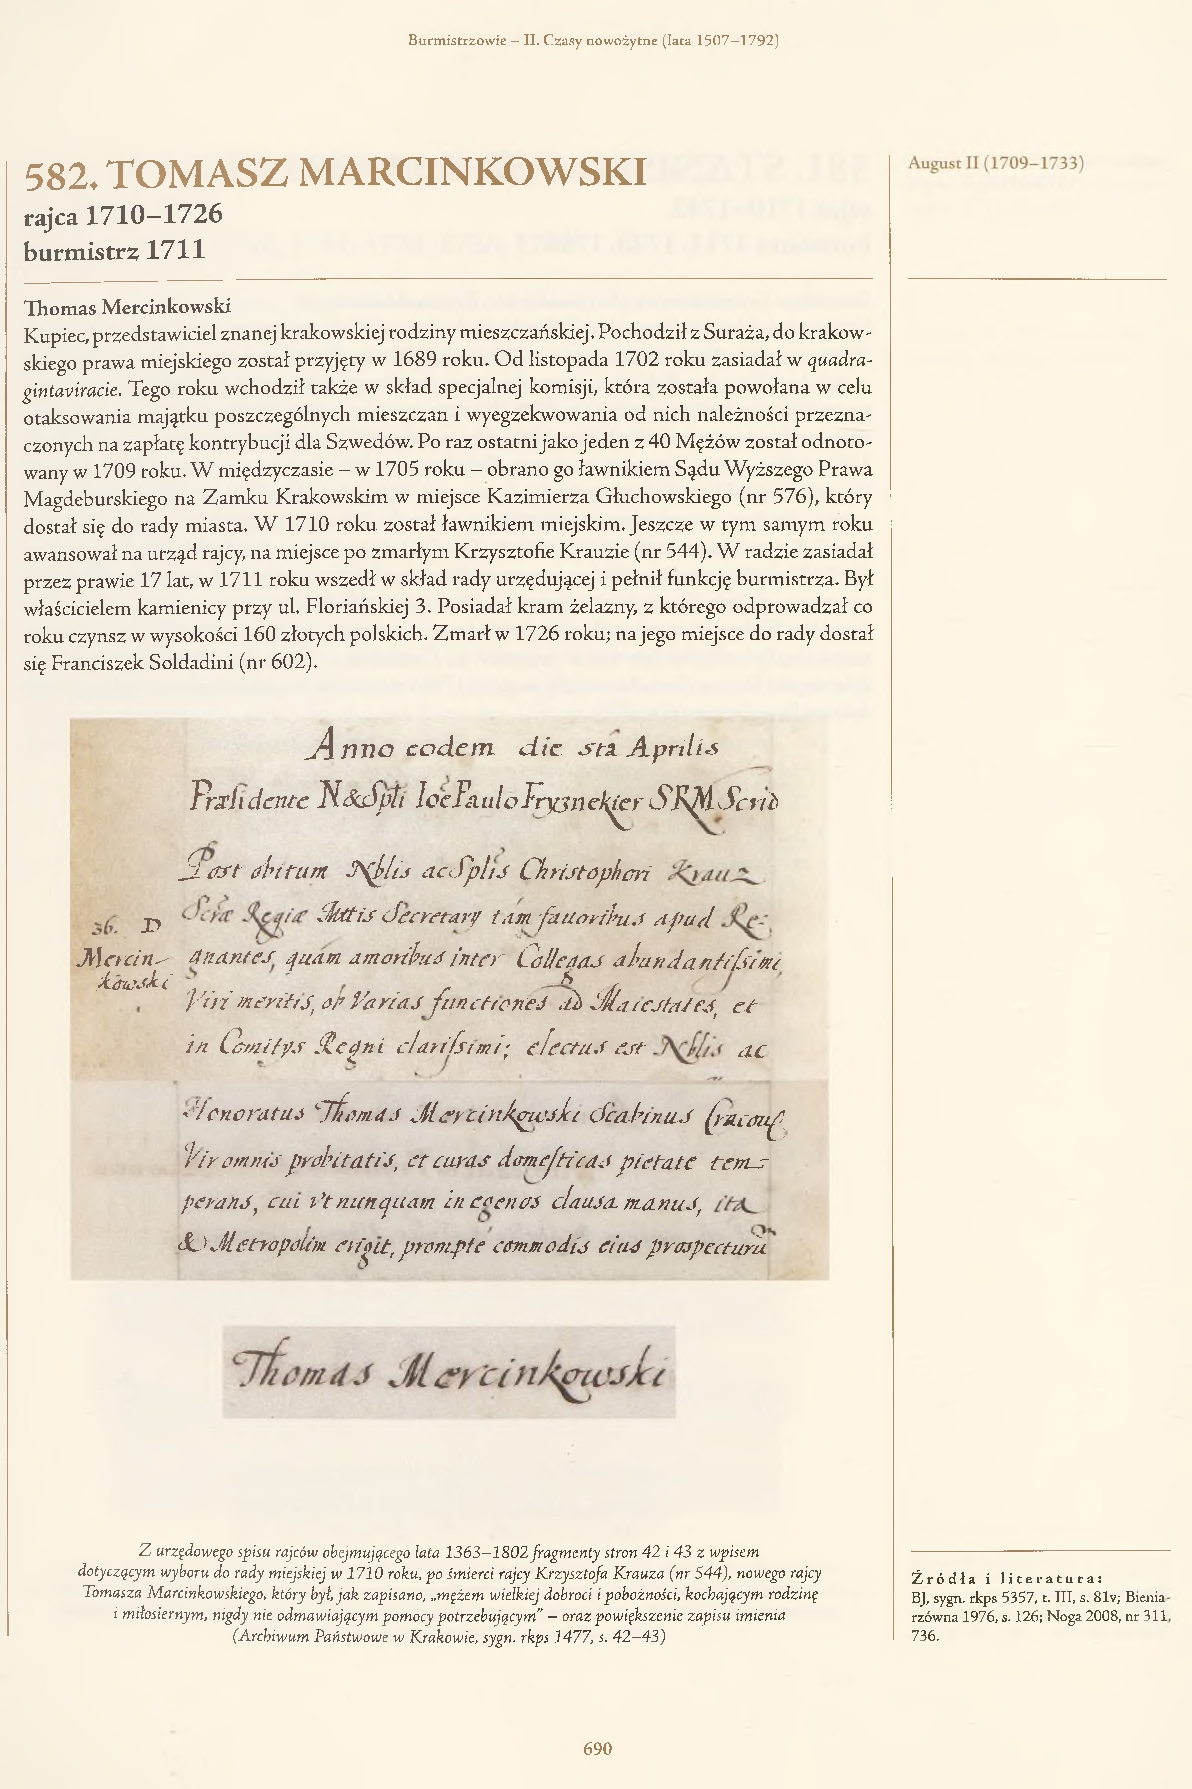 Burmistrzowie – II. Czasy nowożytne (lata 1507–1792)
582. TOMASZ MARCINKOWSKI
rajca 1710–1726
burmistrz 1711
August II (1709–1733)
Thomas Mercinkowski
Kupiec, przedstawiciel znanej krakowskiej rodziny mieszczańskiej. Pochodził z Suraża, do krakow-
skiego prawa miejskiego został przyjęty w 1689 roku. Od listopada 1702 roku zasiadał w quadra-
gintaviracie. Tego roku wchodził także w skład specjalnej komisji, która została powołana w celu
otaksowania majątku poszczególnych mieszczan i wyegzekwowania od nich należności przezna-
czonych na zapłatę kontrybucji dla Szwedów. Po raz ostatni jako jeden z 40 Mężów został odnoto-
wany w 1709 roku. W międzyczasie – w 1705 roku – obrano go ławnikiem Sądu Wyższego Prawa
Magdeburskiego na Zamku Krakowskim w miejsce Kazimierza Głuchowskiego (nr 576), który
dostał się do rady miasta. W 1710 roku został ławnikiem miejskim. Jeszcze w tym samym roku
awansował na urząd rajcy, na miejsce po zmarłym Krzysztofie Krauzie (nr 544). W radzie zasiadał
przez prawie 17 lat, w 1711 roku wszedł w skład rady urzędującej i pełnił funkcję burmistrza. Był
właścicielem kamienicy przy ul. Floriańskiej 3. Posiadał kram żelazny, z którego odprowadzał co
roku czynsz w wysokości 160 złotych polskich. Zmarł w 1726 roku; na jego miejsce do rady dostał
się Franciszek Soldadini (nr 602).
Anno eodem die 5ta Aprilis
Præsidente N&Spli Ioe Paulo Fryznekier SRM Scrib
Post obitum Nblis ac Splis Christophori Krauz
Scræ Regiæ Mttis Secretarij tam fauoribus apud Re-
36. D
Mercin-
kowski
gnantes, quam amoribus inter Collegas abundantissimi
Viri meritis, ob Varias functiones ad Maiestates, et
in Comitys Regni clarissimi; electus est Nblis ac
Honoratus Thomas Mercinkowski Scabinus Cracou
Vir omnis probitatis, et curas domesticas pietate tem-
perans, cui vt nunquam in egenos clausa manus, ita
& Metropolim erigit, prompte commodis eius prospecturu
Thomas Mercinkowski
Z urzędowego spisu rajców obejmującego lata 1363–1802 fragmenty stron 42 i 43 z wpisem
dotyczącym wyboru do rady miejskiej w 1710 roku, po śmierci rajcy Krzysztofa Krauza (nr 544), nowego rajcy
Tomasza Marcinkowskiego, który był, jak zapisano, „mężem wielkiej dobroci i pobożności, kochającym rodzinę
i miłosiernym, nigdy nie odmawiającym pomocy potrzebującym” – oraz powiększenie zapisu imienia
(Archiwum Państwowe w Krakowie, sygn. rkps 1477, s. 42–43)
Źródła i literatura:
BJ, sygn. rkps 5357, t. III, s. 81v; Bienia-
rzówna 1976, s. 126; Noga 2008, nr 311,
736.
690